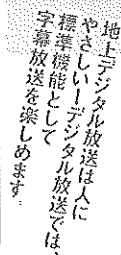 地上デジタル放送は人に
やさしい－デジタル放送では、
標準機能として
字幕放送を楽しめます。